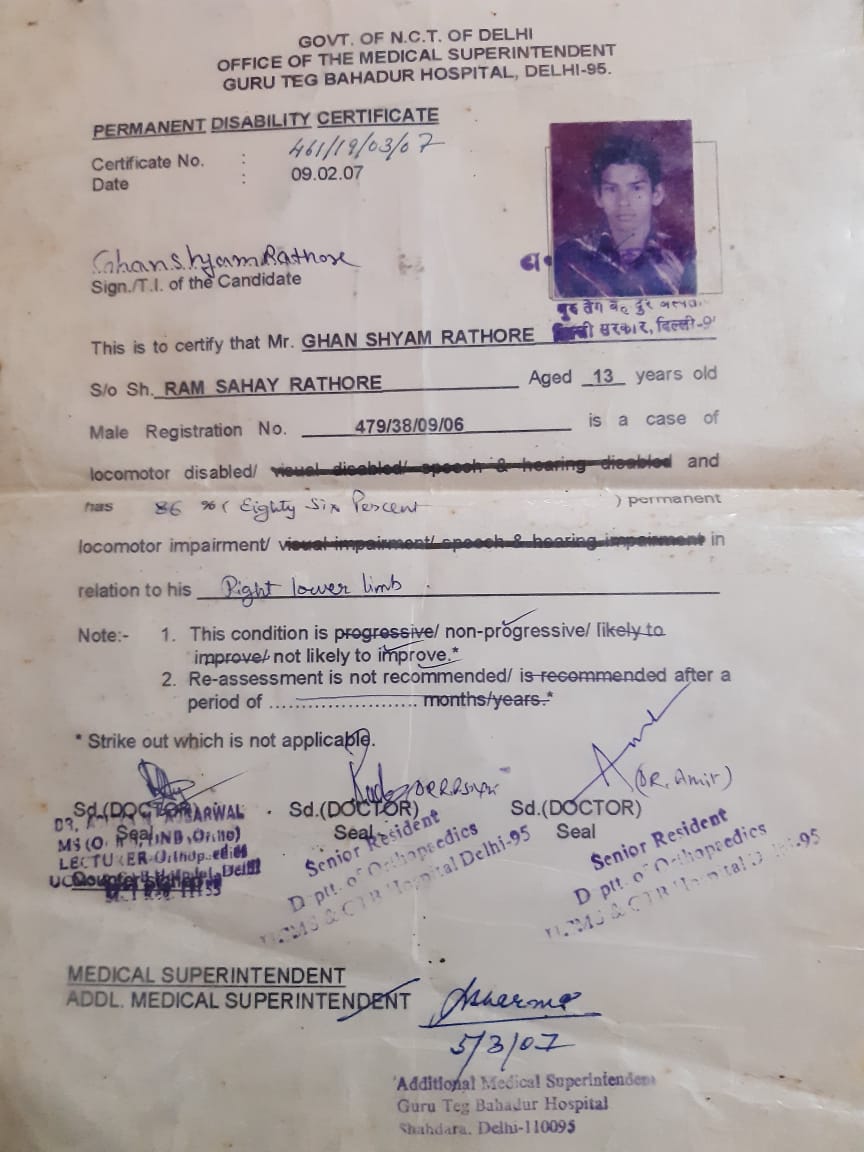 GOVT. OF N.C.T. OF DELHI
OFFICE OF THE MEDICAL SUPERINTENDENT
GURU TEG BAHADUR HOSPITAL, DELHI-95.
PERMANENT DISABILITY CERTIFICATE
Certificate No. : 461/19/03/07
Date : 09.02.07
Ghanshyam Rathore
Sign./T.I. of the Candidate
सरकार, दिल्ली-9
This is to certify that Mr. GHAN SHYAM RATHORE
S/o Sh. RAM SAHAY RATHORE Aged 13 years old
Male Registration No. 479/38/09/06 is a case of
locomotor disabled/ visual disabled/ speech & hearing disabled and
has 86 % ( Eighty Six Percent ) permanent
locomotor impairment/ visual impairment/ speech & hearing impairment in
relation to his Right lower limb .
Note:- 1. This condition is progressive/ non-progressive/ likely to
improve/ not likely to improve.*
2. Re-assessment is not recommended/ is recommended after a
period of ........................ months/years.*
* Strike out which is not applicable.
(DR. Amir)
Sd.(DOCTOR) Sd.(DOCTOR) Sd.(DOCTOR)
Seal Seal Seal
LECTURER-Orthopaedics
Senior Resident
Deptt. of Orthopaedics
UCMS & GTB Hospital Delhi-95
Senior Resident
Deptt. of Orthopaedics
UCMS & GTB Hospital Delhi-95
MEDICAL SUPERINTENDENT
ADDL. MEDICAL SUPERINTENDENT
5/3/07
Additional Medical Superintendent
Guru Teg Bahadur Hospital
Shahdara, Delhi-110095